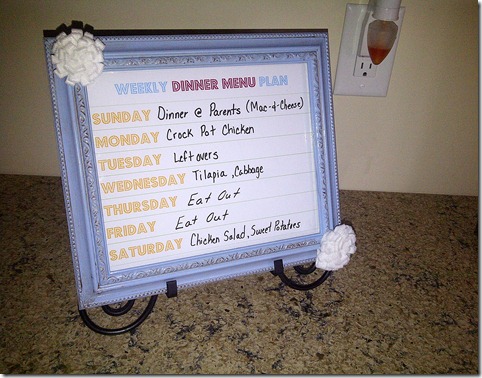 WEEKLY DINNER MENU PLAN
SUNDAY Dinner @ Parents (Mac-&-Cheese)
MONDAY Crock Pot Chicken
TUESDAY Leftovers
WEDNESDAY Tilapia, Cabbage
THURSDAY Eat Out
FRIDAY Eat Out
SATURDAY Chicken Salad, Sweet Potatoes